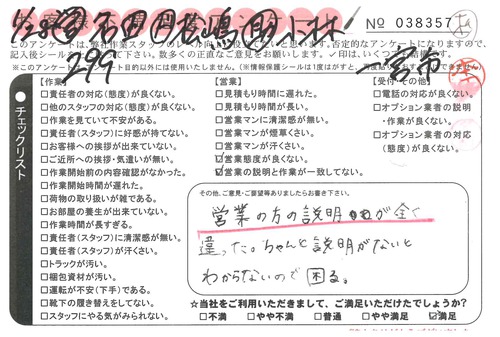 No 038357
このアンケートは、弊社作業スタッフのレベル向上に役立てたいと思います。否定的なアンケートになりますので、
記入後シール
299
一宮市
チェックリスト
【作業】
□責任者の対応(態度)が良くない。
□他のスタッフの対応(態度)が良くない。
□作業を見ていて不安がある。
□責任者(スタッフ)に好感が持てない。
□お客様への挨拶が出来ていない。
□ご近所への挨拶・気遣いが無い。
□作業開始前の内容確認がなかった。
□作業開始時間が遅れた。
□荷物の取り扱いが雑である。
□お部屋の養生が出来ていない。
□作業時間が長すぎる。
□責任者(スタッフ)に清潔感が無い。
□責任者(スタッフ)が汗くさい。
□トラックが汚い。
□梱包資材が汚い。
□運転が不安(下手)である。
□靴下の履き替えをしてない。
□スタッフにやる気がみられない。
【営業】
□見積もり時間に遅れた。
□見積もり時間が長い。
□営業マンに清潔感が無い。
□営業マンが煙草くさい。
□営業マンが汗くさい。
☑営業態度が良くない。
☑営業の説明と作業が一致してない。
【受付・その他】
□電話の対応が良くない。
□オプション業者の説明
・作業が良くない。
□オプション業者の対応
(態度)が良くない。
その他、ご意見・ご要望等ありましたらお書き下さい。
営業の方の説明が全く
違った。ちゃんと説明がないと
わからないので困る。
☆当社をご利用いただきまして、ご満足いただけたでしょうか?
□不満 □やや不満 □普通 □やや満足 ☑満足